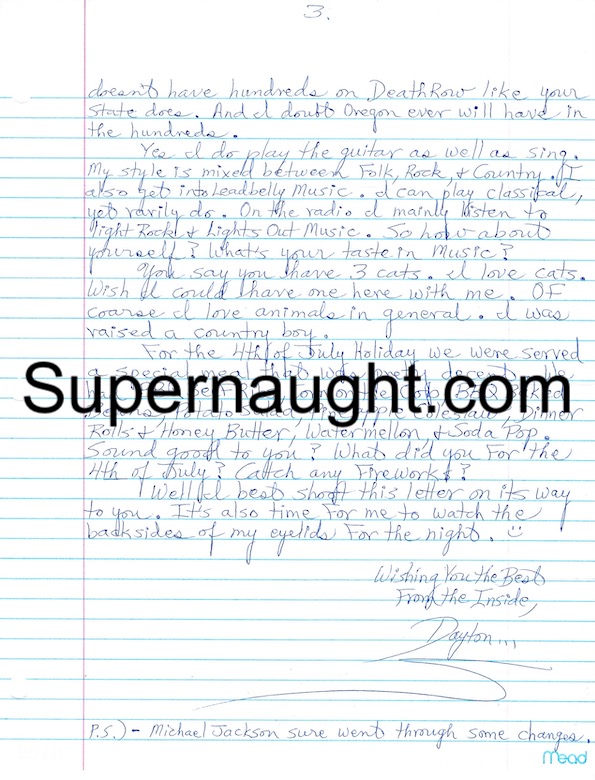 3.
doesn't have hundreds on Death Row like your
State does. And I doubt Oregon ever will have in
the hundreds.
Yes I do play the guitar as well as sing.
My style is mixed between Folk, Rock, & Country. I
also get into Leadbelly Music. I can play classical,
yet rarily do. On the radio I mainly listen to
light Rock & Lights Out Music. So how about
yourself? What's your taste in Music?
You say you have 3 cats. I love cats.
Wish I could have one here with me. OF
coarse I love animals in general. I was
raised a country boy.
For the 4th of July Holiday we were served
a special meal that was pretty decent. We
Supernaught.com
Rolls & Honey Butter, Watermellon & Soda Pop.
Sound good to you? What did you For the
4th of July? Catch any Fireworks?
Well I best shoot this letter on its way
to you. It's also time For me to watch the
backsides of my eyelids For the night.
Wishing You the Best
From the Inside,
Dayton...
P.S.) - Michael Jackson sure went through some changes.
Mead